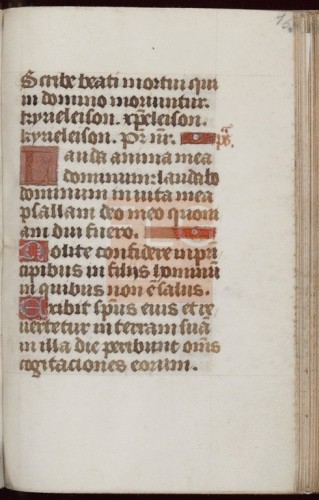 Scribe beati mortui qui
in domino moriuntur.
kyrieleison. xp̄eleison.
kyrieleison. Pr̄ nr̄. ps̄.
Lauda anima mea
dominum: laudabo
dominum in uita mea
psallam deo meo quam
diu fuero.
Nolite confidere in pri
cipibus in filijs hominū
in quibus non ē salus.
Exibit sp̄us eius et re
uertetur in terram suā
in illa die peribunt om̄s
cogitaciones eorum.